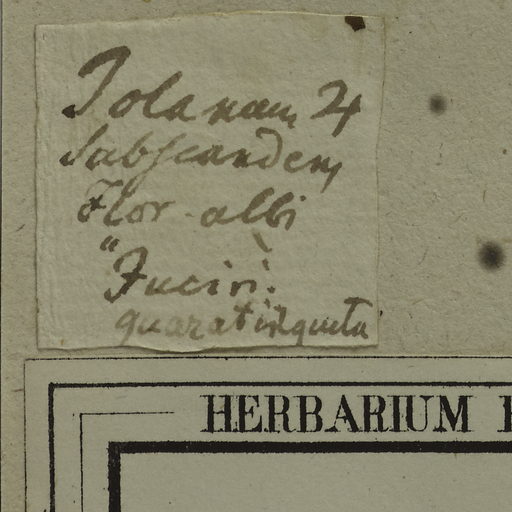 Solanum 24
Subscandens
Flor. albi
Guaratingueta
HERBARIUM